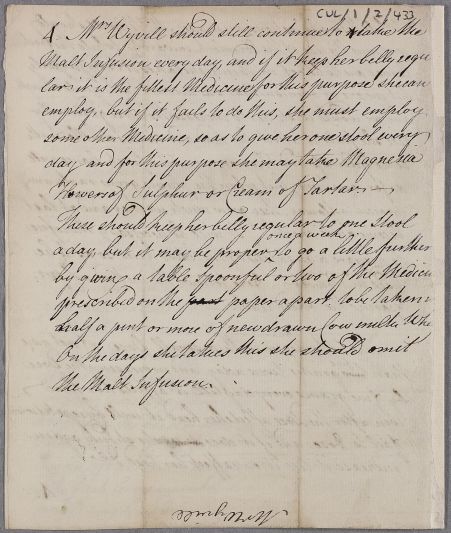 CUL/1/2/433
4. Mrs Wyvill should still continue to take the
Malt Infusion every day, and if it keep her belly regu
lar it is the fittest Medicine for this purpose she can
employ, but if it fails to do this, she must employ
some other Medicine, so as to give her one stool every
day and for this purpose she may take Magnesia
Flowers of Sulphur or Cream of Tartar.
These should keep her belly regular to one Stool
once a week
a day but it may be proper to go a little further
by given a table Spoonful or two of the Medicin
prescribed on the paper apart to be taken in
half a pint or more of new drawn Cow milk Whe
On the days she takes this she should omit
the Malt Infusion.
Mrs Wyvill